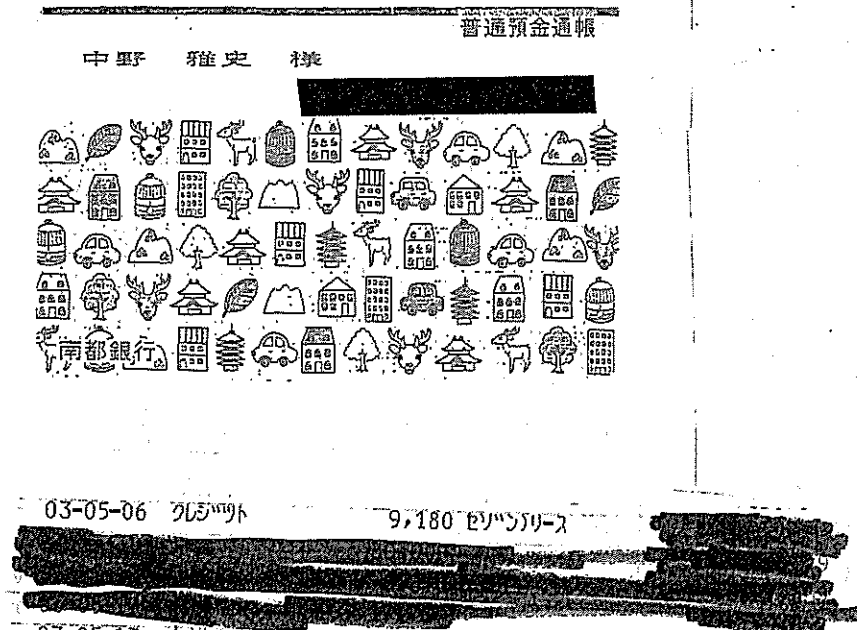 普通預金通帳
中野 雅史 様
南都銀行
03-05-06 クレジット 9,180 セゾンリース